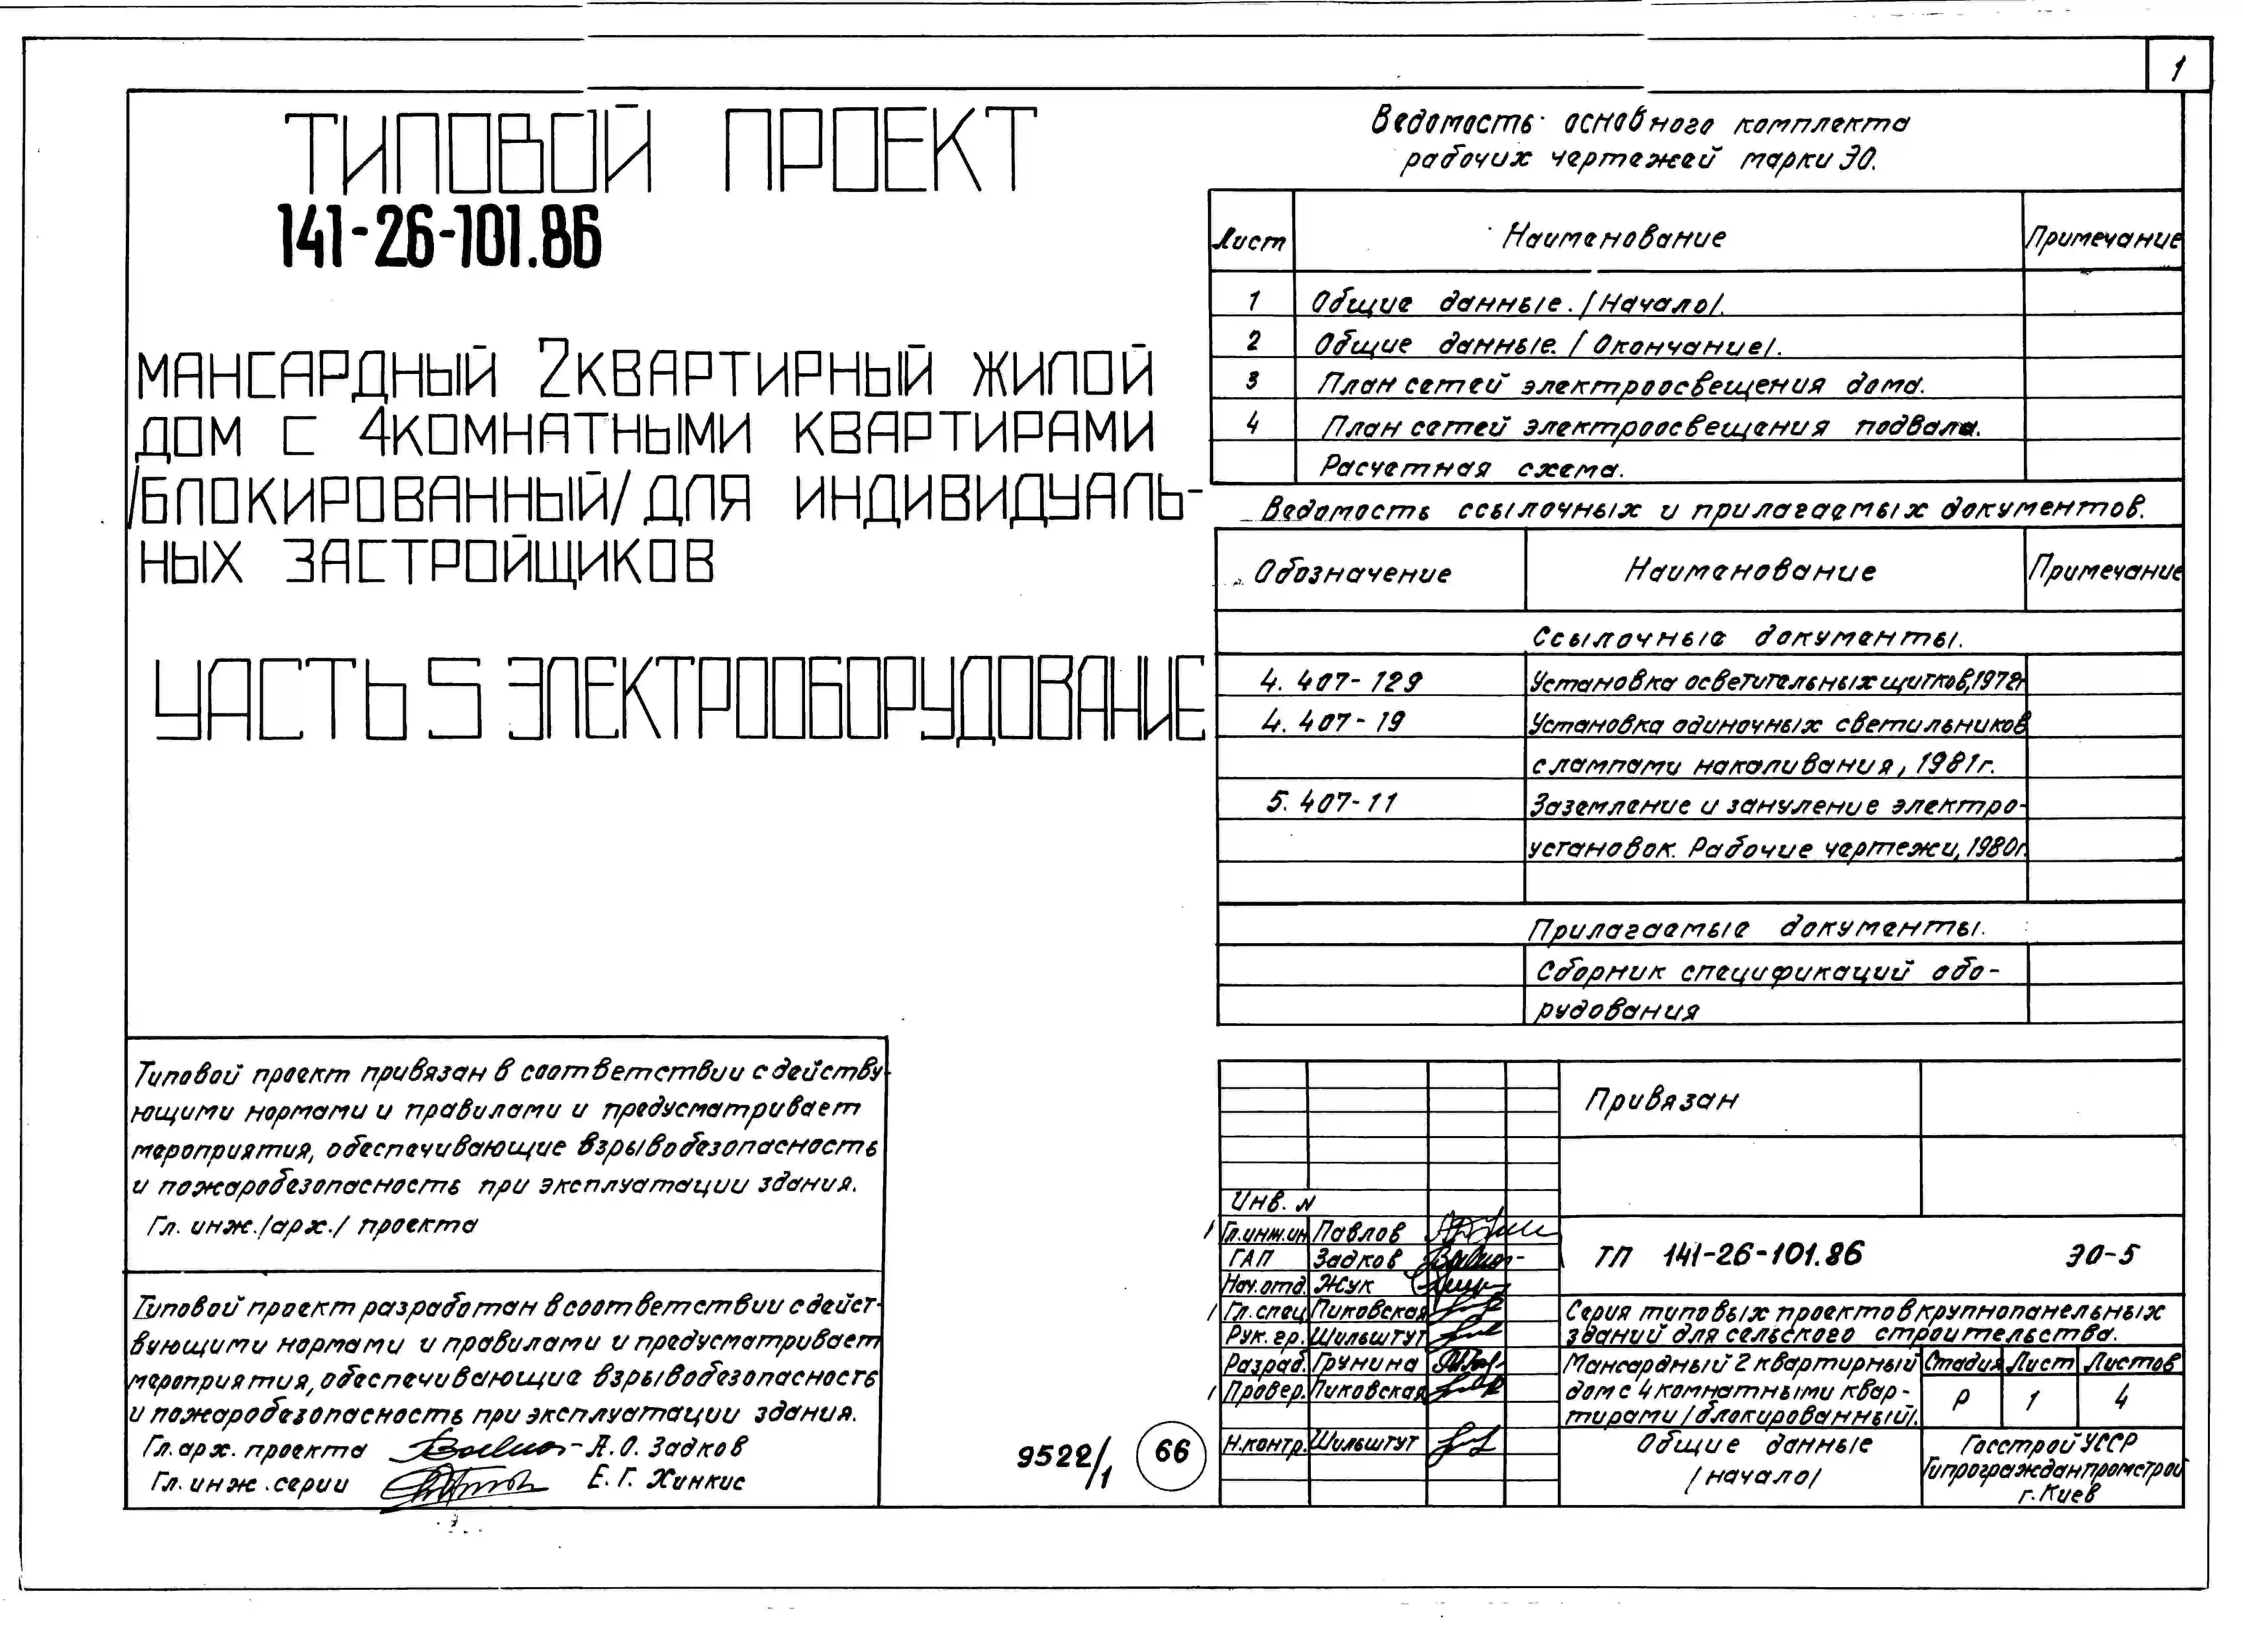 1
ТИПОВОЙ ПРОЕКТ
141-26-101.86
МАНСАРДНЫЙ 2КВАРТИРНЫЙ ЖИЛОЙ
ДОМ С 4КОМНАТНЫМИ КВАРТИРАМИ
/БЛОКИРОВАННЫЙ/ ДЛЯ ИНДИВИДУАЛЬ-
НЫХ ЗАСТРОЙЩИКОВ
ЧАСТЬ 5 ЭЛЕКТРООБОРУДОВАНИЕ
Ведомость основного комплекта
рабочих чертежей марки ЭО.
Лист Наименование Примечание
1 Общие данные. /Начало/.
2 Общие данные. /Окончание/.
3 План сетей электроосвещения дома.
4 План сетей электроосвещения подвала.
Расчетная схема.
Ведомость ссылочных и прилагаемых документов.
Обозначение Наименование Примечание
Ссылочные документы.
4.407-129 Установка осветительных щитков, 1972г
4.407-19 Установка одиночных светильников
с лампами накаливания, 1981г.
5.407-11 Заземление и зануление электро-
установок. Рабочие чертежи, 1980г.
Прилагаемые документы.
Сборник спецификаций обо-
рудования
Типовой проект привязан в соответствии с действу-
ющими нормами и правилами и предусматривает
мероприятия, обеспечивающие взрывобезопасность
и пожаробезопасность при эксплуатации здания.
Гл. инж./арх./ проекта
Типовой проект разработан в соответствии с дейст-
вующими нормами и правилами и предусматривает
мероприятия, обеспечивающие взрывобезопасность
и пожаробезопасность при эксплуатации здания.
Гл. арх. проекта А.О. Задков
Гл. инж. серии Е.Г. Хинкис
9522/1 66
Привязан
Инв. N
Гл.инж.ин Павлов
ГАП Задков
Нач.отд. Жук
Гл.спец. Пиковская
Рук. гр. Шильштут
Разраб. Грунина
Провер. Пиковская
Н.контр. Шильштут
ТП 141-26-101.86 ЭО-5
Серия типовых проектов крупнопанельных
зданий для сельского строительства.
Мансардный 2 квартирный
дом с 4 комнатными квар-
тирами /блокированный/.
Стадия Лист Листов
Р 1 4
Общие данные
/начало/
Госстрой УССР
Гипрогражданпромстрой
г. Киев